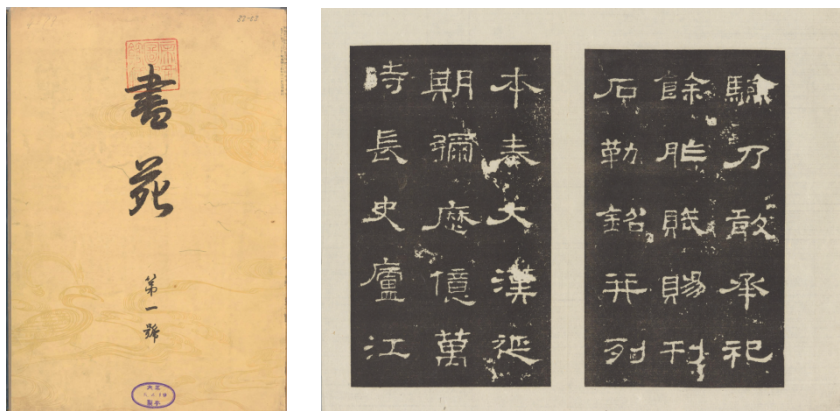 書苑
第一號
驗乃敢承祀
餘胙賦賜刊
石勒銘并列
本奏大漢延
期彌歷億萬
時長史廬江